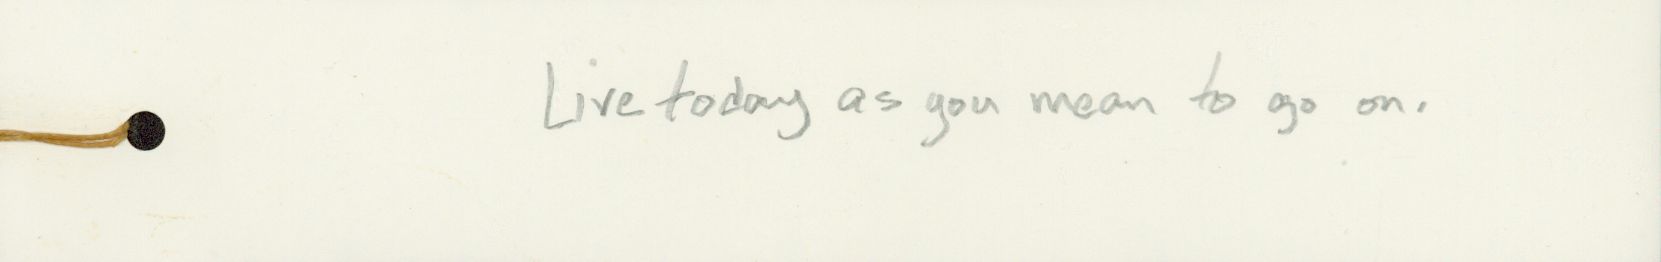 Live today as you mean to go on.